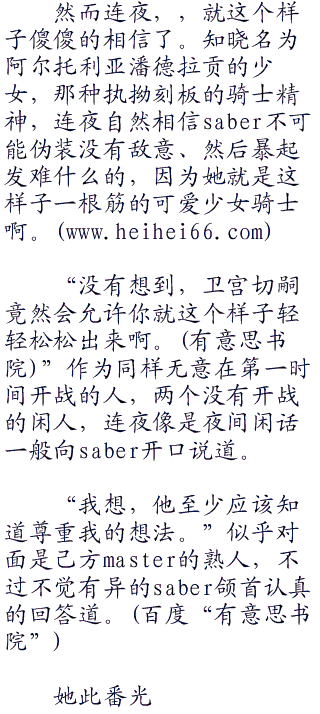 然而连夜，，就这个样
子傻傻的相信了。知晓名为
阿尔托利亚潘德拉贡的少
女，那种执拗刻板的骑士精
神，连夜自然相信saber不可
能伪装没有敌意、然后暴起
发难什么的，因为她就是这
样子一根筋的可爱少女骑士
啊。(www.heihei66.com)
“没有想到，卫宫切嗣
竟然会允许你就这个样子轻
轻松松出来啊。(有意思书
院)”作为同样无意在第一时
间开战的人，两个没有开战
的闲人，连夜像是夜间闲话
一般向saber开口说道。
“我想，他至少应该知
道尊重我的想法。”似乎对
面是己方master的熟人，不
过不觉有异的saber颌首认真
的回答道。(百度“有意思书
院”)
她此番光